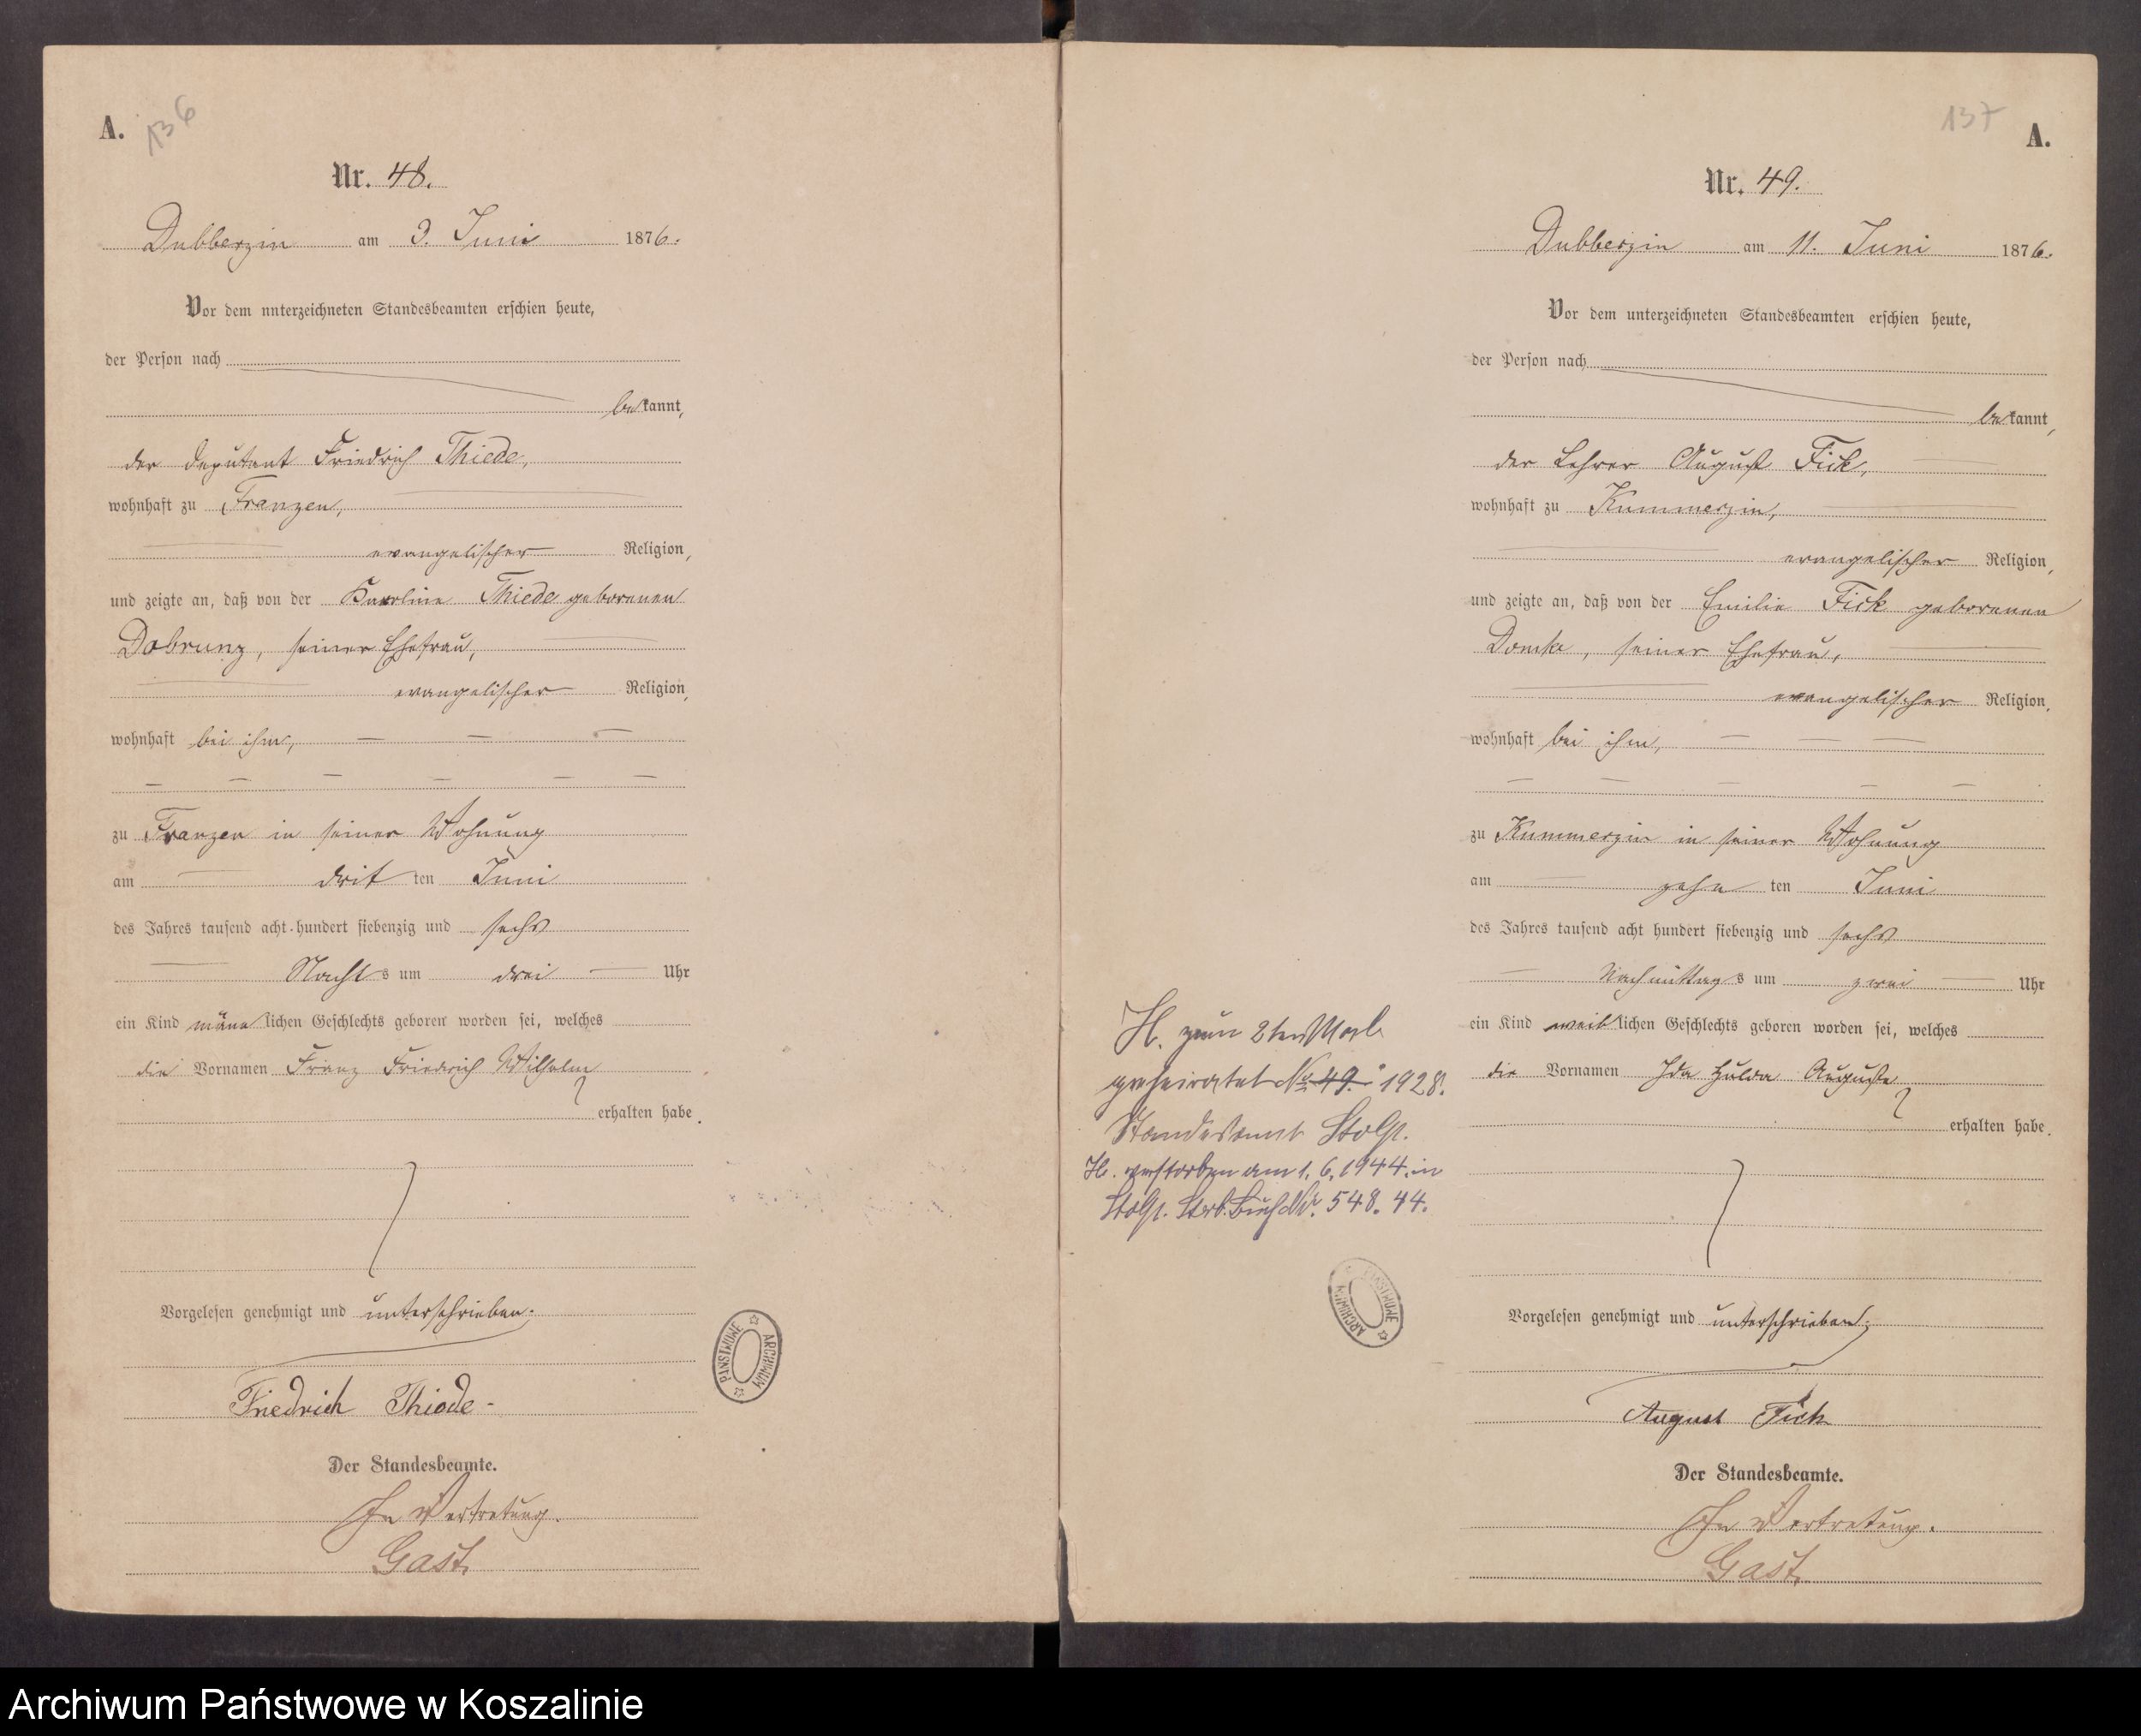 A. 136
Nr. 48.
Dubberzin am 3. Juni 1876.
Vor dem nnterzeichneten Standesbeamten erschien heute,
der Person nach
bekannt,
der Deputant Friedrich Thiede,
wohnhaft zu Franzen,
evangelischer Religion,
und zeigte an, daß von der Karoline Thiede geborenen
Dobrunz, seiner Ehefrau,
evangelischer Religion,
wohnhaft bei ihm,
zu Franzen in seiner Wohnung
am dritten Juni
des Jahres tausend acht hundert siebenzig und sechs
Nachts um drei Uhr
ein Kind männlichen Geschlechts geboren worden sei, welches
die Vornamen Franz Friedrich Wilhelm
erhalten habe.
Vorgelesen genehmigt und unterschrieben.
Friedrich Thiede
Der Standesbeamte.
In Vertretung.
Gast.
ARCHIWUM PAŃSTWOWE
137 A.
Nr. 49.
Dubberzin am 11. Juni 1876.
Vor dem unterzeichneten Standesbeamten erschien heute,
der Person nach
bekannt,
der Lehrer August Fick,
wohnhaft zu Kummerzin,
evangelischer Religion,
und zeigte an, daß von der Emilie Fick geborenen
Domke, seiner Ehefrau,
evangelischer Religion,
wohnhaft bei ihm,
zu Kummerzin in seiner Wohnung
am zehnten Juni
des Jahres tausend acht hundert siebenzig und sechs
Nachmittags um zwei Uhr
ein Kind weiblichen Geschlechts geboren worden sei, welches
die Vornamen Ida Hulda Auguste
erhalten habe.
Vorgelesen genehmigt und unterschrieben.
August Fick
Der Standesbeamte.
In Vertretung.
Gast.
zum 2ten Mal
geheiratet No 49. 1928.
Standesamt Stolp.
verstorben am 1. 6. 1944. in
Stolp. Sterb. Buch Nr. 548. 44.
ARCHIWUM PAŃSTWOWE
Archiwum Państwowe w Koszalinie